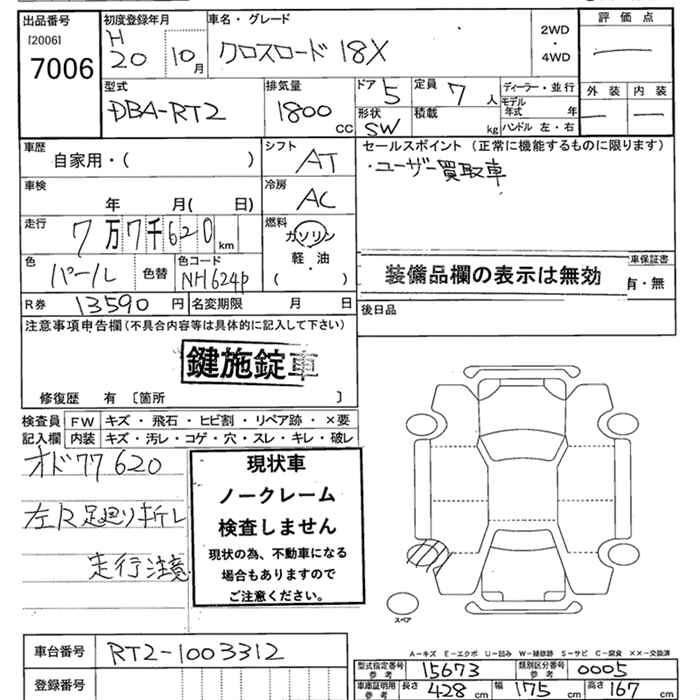 出品番号
[2006]
7006
初度登録年月
H
20 10月
車名・グレード
クロスロード 18X
2WD
・
4WD
評 価 点
外 装 内 装
型式
DBA-RT2
排気量
1800 cc
ドア 5
形状
SW
定員 7 人
積載 kg
ディーラー・並行
モデル
年式 年
ハンドル 左・右
車歴
自家用・( )
シフト
AT
車検
年 月( 日)
冷房
AC
走行
7万7千620 km
燃料
ガソリン
軽・油
( )
色
パール
色替
色コード
NH624P
R券 13590 円
名変期限 月 日
セールスポイント (正常に機能するものに限ります)
・ユーザー買取車
装備品欄の表示は無効
車保証書
有・無
後日品
注意事項申告欄(不具合内容等は具体的に記入して下さい)
鍵施錠車
修復歴 有 〔箇所 〕
検査員 FW キズ・飛石・ヒビ割・リペア跡・×要
記入欄 内装 キズ・汚レ・コゲ・穴・スレ・キレ・破レ
オド77620
左R足廻り折レ
走行注意
現状車
ノークレーム
検査しません
現状の為、不動車になる
場合もありますので
ご注意ください。
スペア
A－キズ E－エクボ U－凹み W－補修跡 S－サビ C－腐食 ××－交換済
車台番号 RT2-1003312
登録番号
型式指定番号
参考
15673
類別区分番号
参考
0005
車庫証明用
参考
長さ 428 cm 幅 175 cm 高さ 167 cm